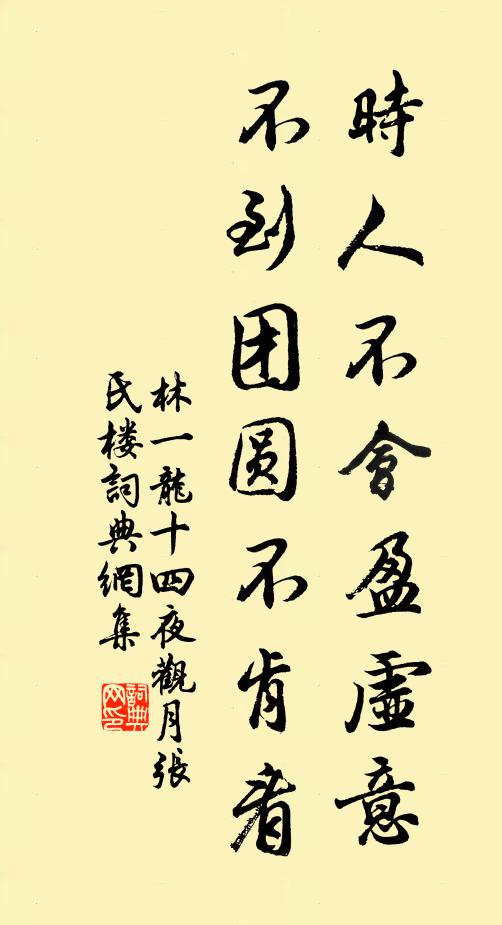 時人不會盈虛意
不到团圆不肯看
林一龍十四夜觀月張
氏楼詞典網集
詞典网印